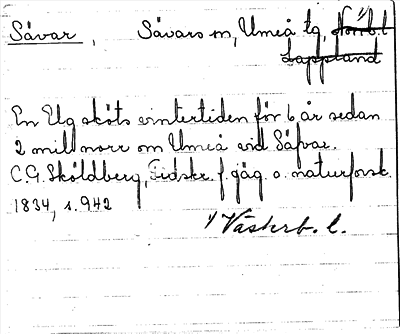 Sävar, Sävars sn, Umeå lg, Norrb. l. 1/
Lappland
En Uf sköts vintertiden för 6 år sedan
2 mil norr om Umeå vid Säfvar.
C.G. Sköldberg, Tidskr. f. jäg. o. naturforsk.
1834, s. 942
1/ Västerb. l.